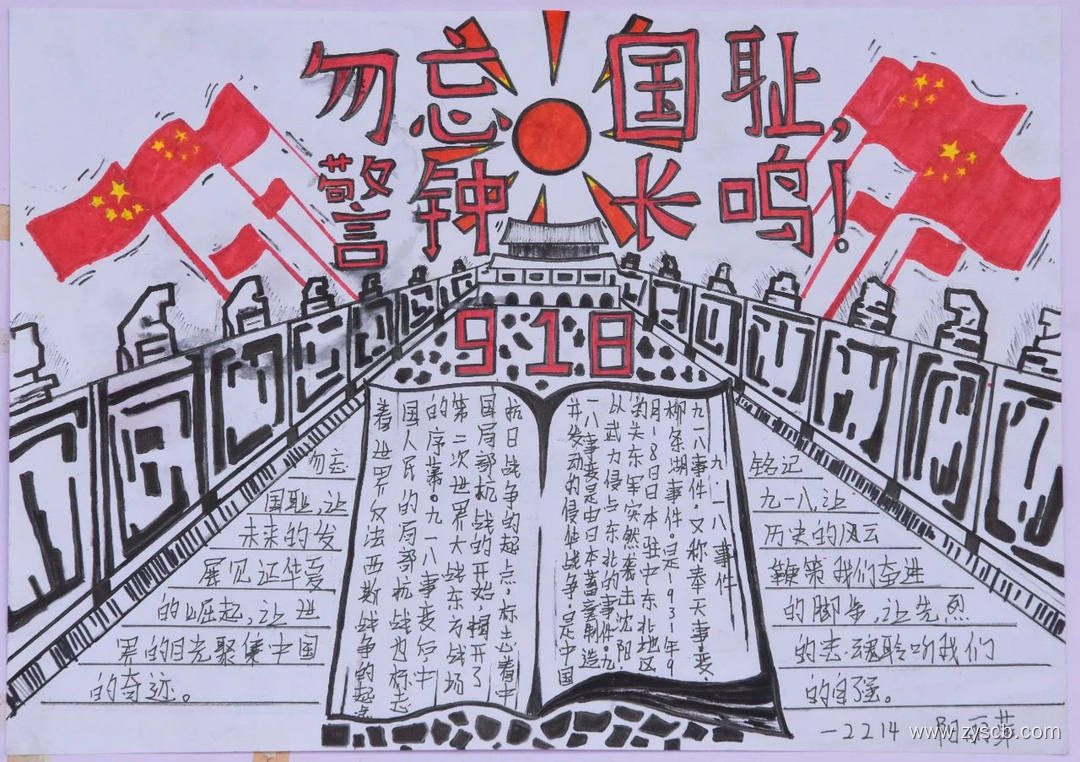 勿忘国耻,
警钟长鸣!
918
九一八事件
九一八事件。又称奉天事变、
柳条湖事件。是1931年9
月18日日本驻中东北地区
的关东军突然袭击沈阳
以武力侵占东北的事件。九
一八事变是由日本蓄意制造
并发动的侵华战争,是中国
抗日战争的起点,标志着中
国局部抗战的开始,揭开了
第二次世界大战东方战场
的序幕。九一八事变后,中
国人民的局部抗战也标志
着世界反法西斯战争的起点
勿忘
国耻,让
未来的发
展见证华夏
的崛起,让世
界的目光聚集中国
的奇迹。
铭记
九一八,让
历史的风云
鞭策我们奋进
的脚步,让先烈
的忠魂聆听我们
的自强。
-2214 阳
www.zyscb.com